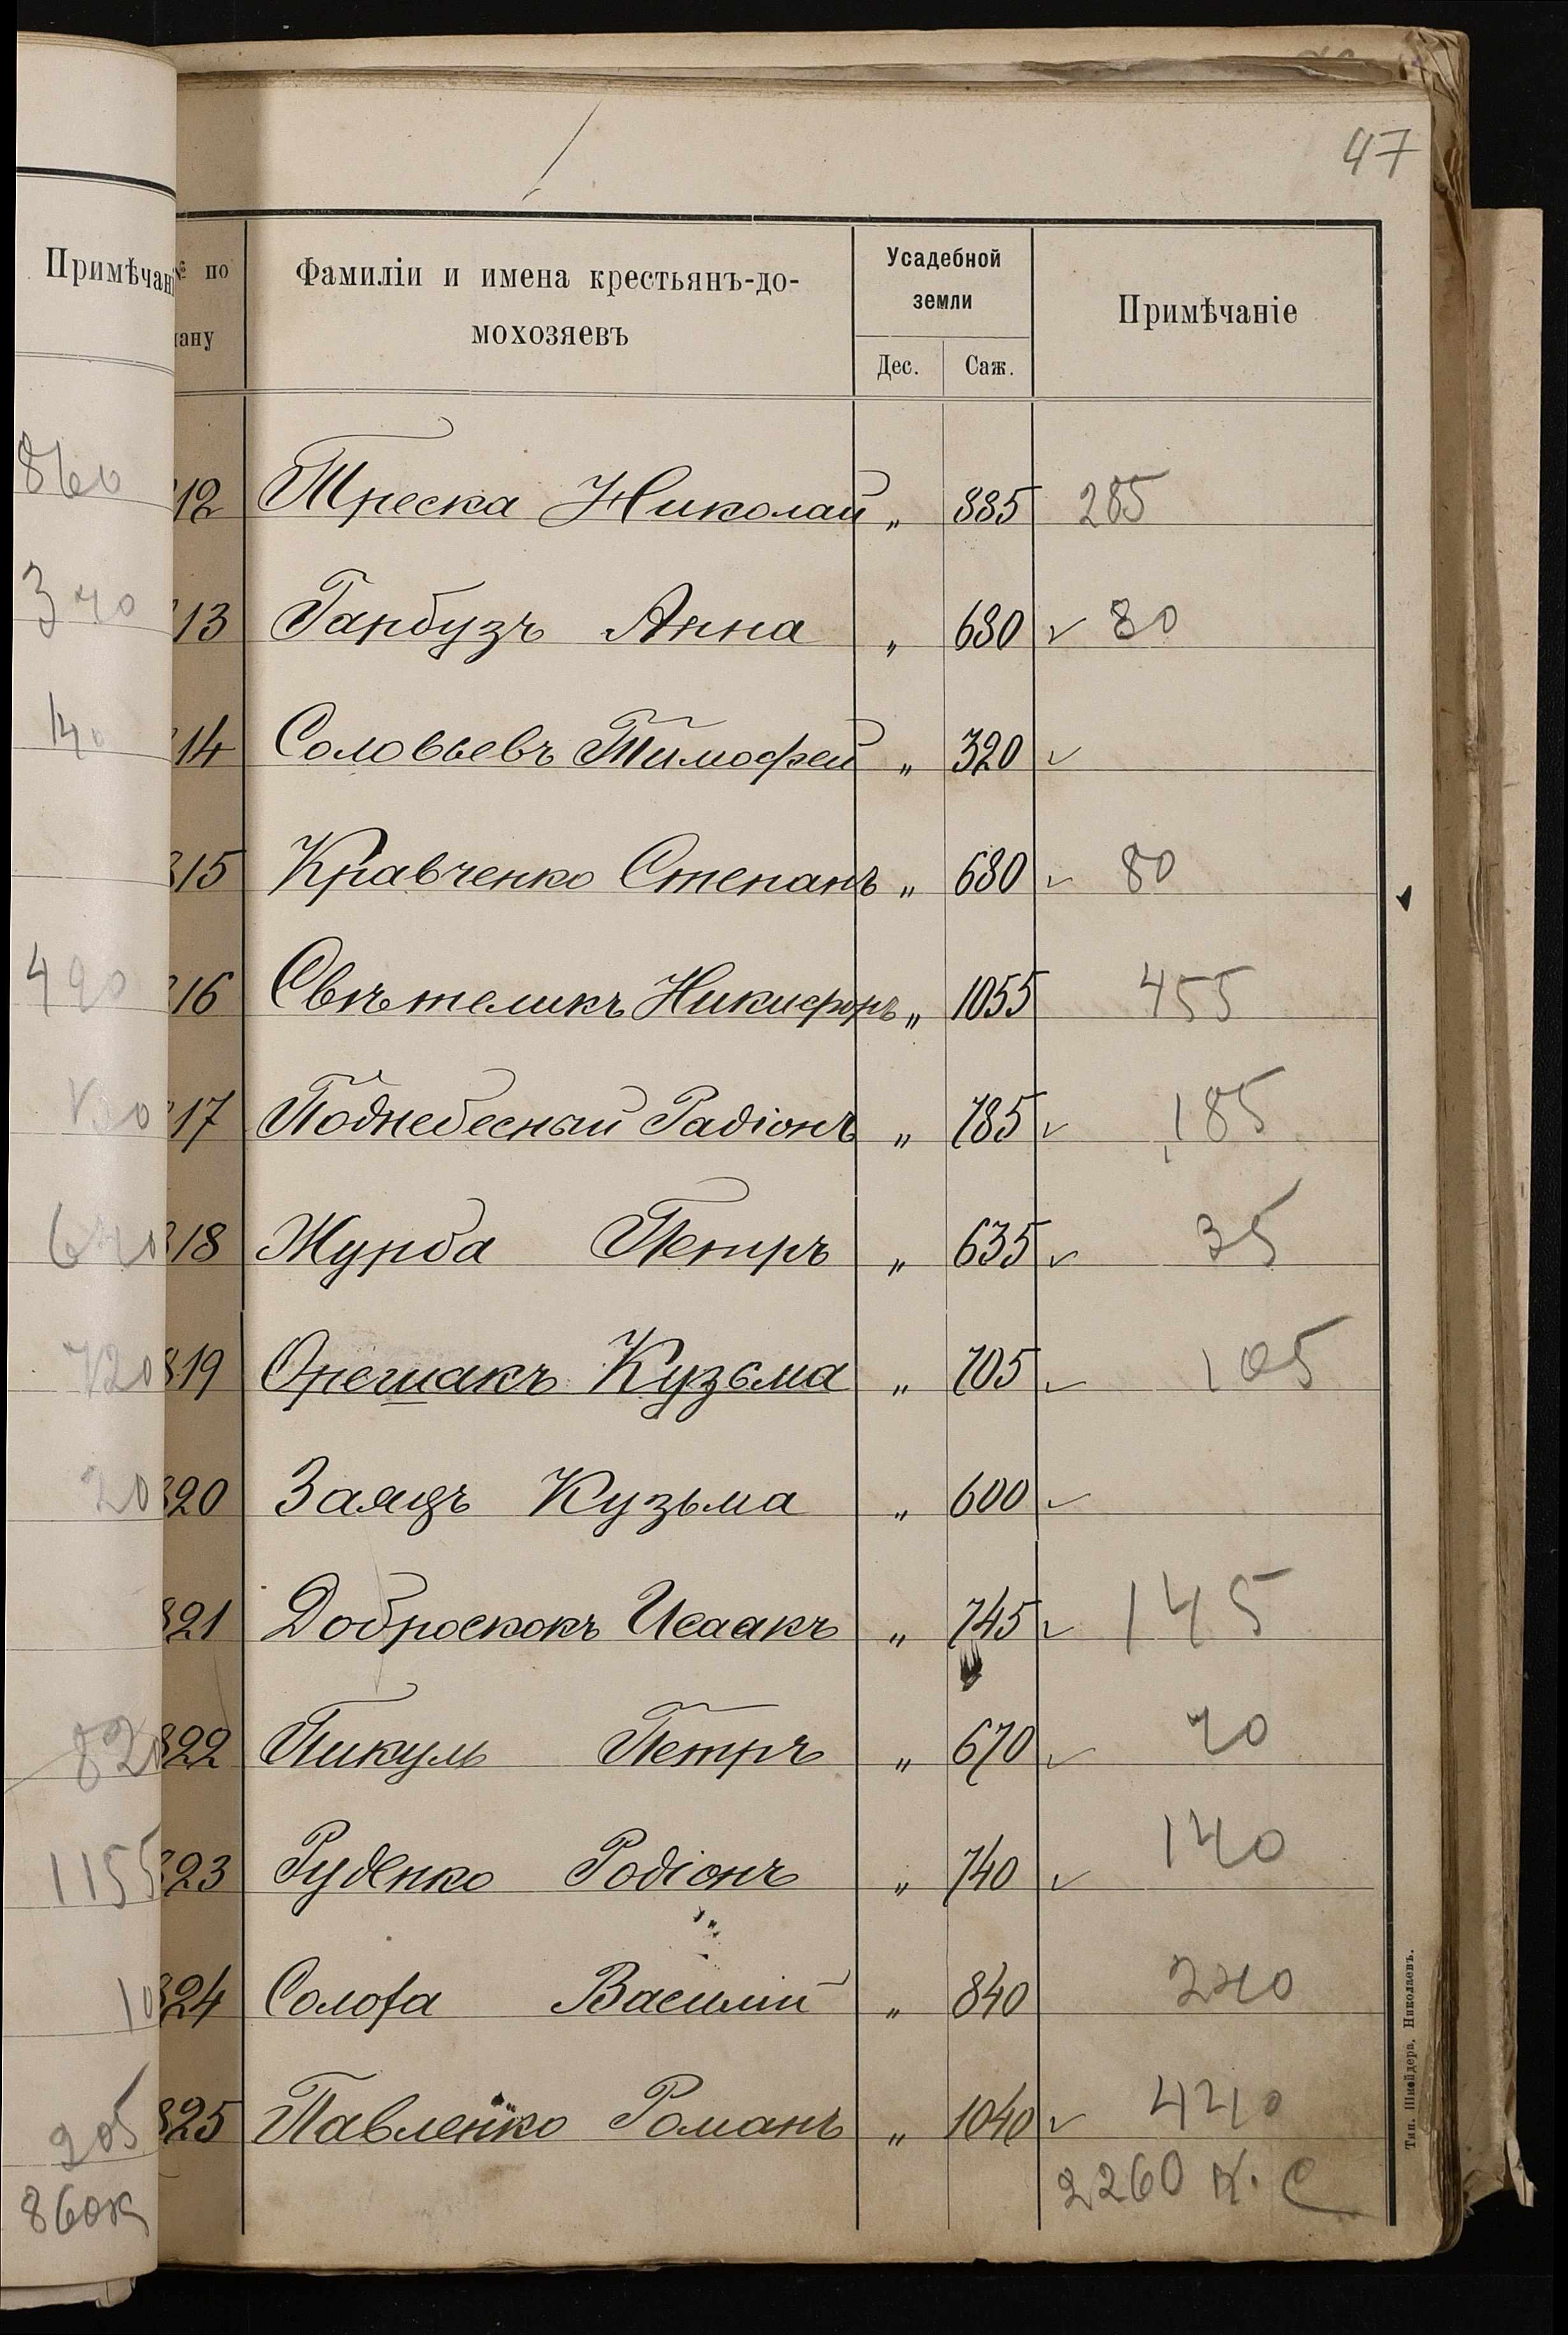 47
Примѣчан
№ по
ану
Фамиліи и имена крестьянъ-до-
мохозяевъ
Усадебной
земли
Дес. Саж.
Примѣчаніе
860
12 Треска Николай „ 885 285
340
13 Гарбузъ Анна „ 680 ✓ 80
140
14 Соловьевъ Тимофей „ 320 ✓
815 Кравченко Степанъ „ 680 ✓ 80
490
816 Свѣтеликъ Никифоръ „ 1055 455
817 Поднебесный Радіонъ „ 785 ✓ 185
640
818 Журба Петръ „ 635 ✓ 35
720
819 Орешакъ Кузьма „ 705 ✓ 105
20
820 Заяцъ Кузьма „ 600 ✓
821 Доброскокъ Исаакъ „ 745 ✓ 145
820
822 Пикуль Петръ „ 670 ✓ 70
1155
823 Руденко Родіонъ „ 740 ✓ 140
10
824 Солоfа Василій „ 840 240
205
825 Павленко Романъ „ 1040 ✓ 440
860к
2260 к. С
Тип. Шнейдера, Николаевъ.